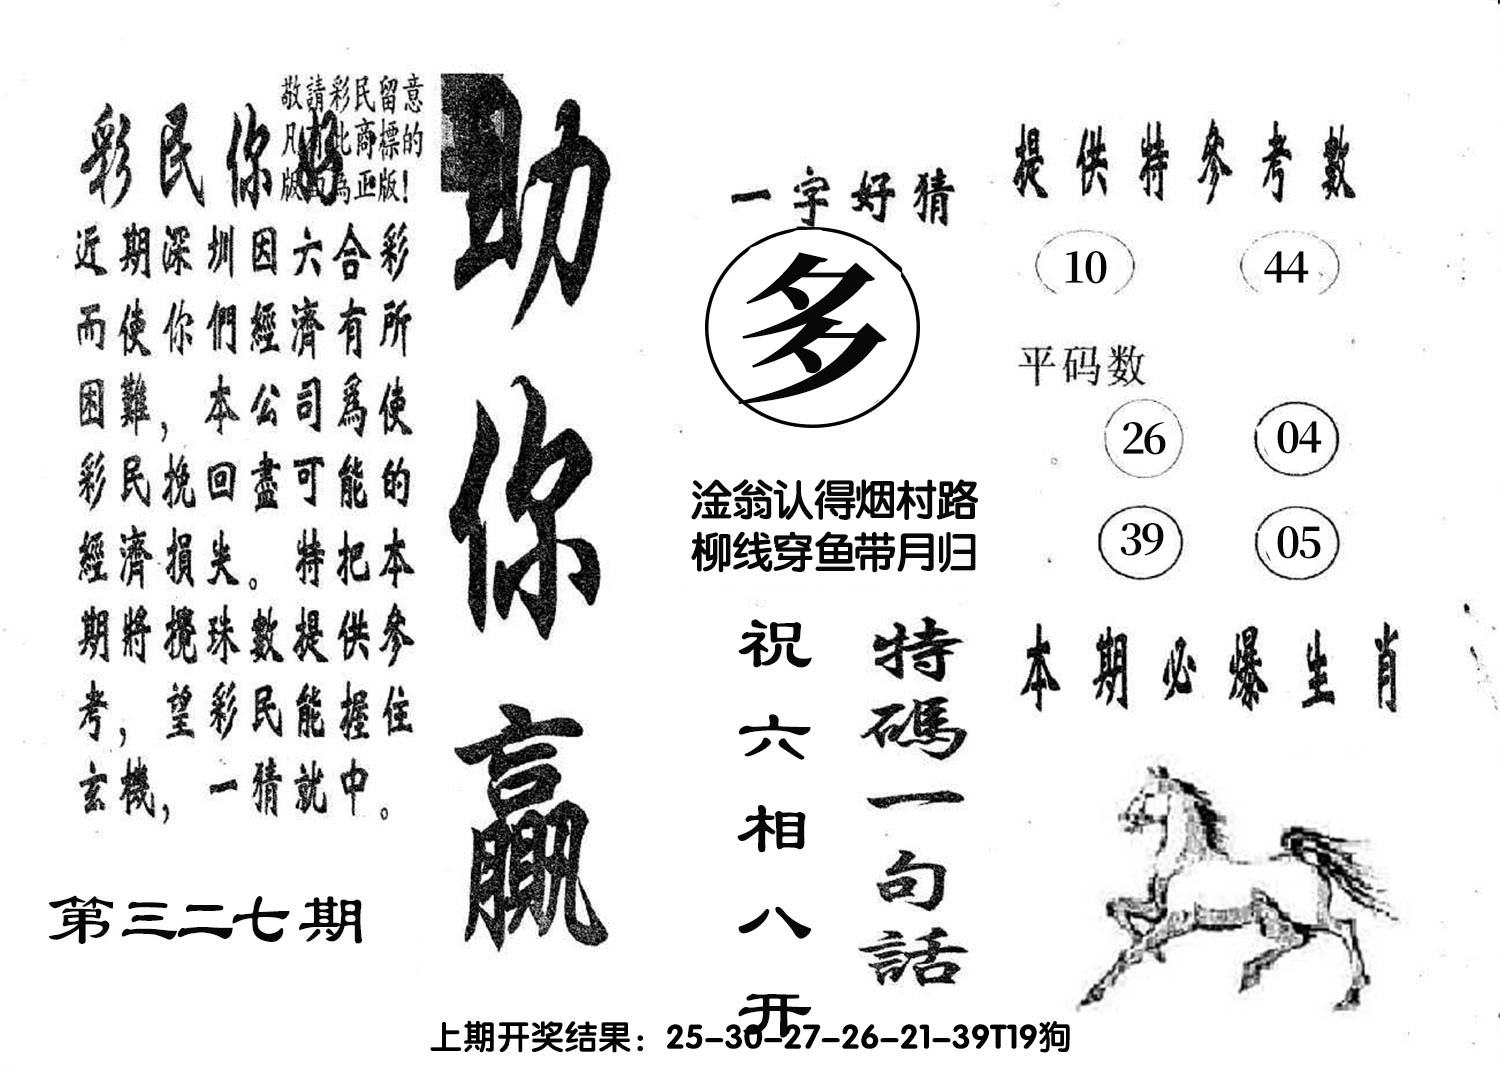 敬請彩民留意
凡有此商標的
版面為正版！
彩民你好
近期深圳因六合彩
而使你們經濟有所
困難，本公司爲使
彩民挽回盡可能的
經濟損失。特把本
期將攪珠數提供參
考，望彩民能握住
玄機，一猜就中。
第三二七期
助你赢
一字好猜
多
淦翁认得烟村路
柳线穿鱼带月归
特碼一句話
祝六相八开
提供特參考數
10 44
平码数
26 04
39 05
本期必爆生肖
上期开奖结果：25-30-27-26-21-39T19狗